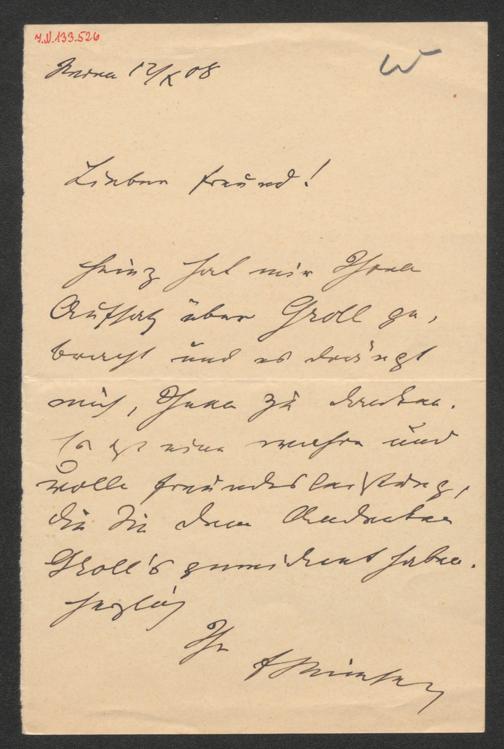 J.N.133.526
12/X 08
Lieber Freund!
Heinz hat mir Ihren
Aufsatz über Groll ge-
bracht und es drängt
mich, Ihnen zu danken.
Es ist eine wahre und
volle Freundesleistung,
die Sie dem Andenken
Groll's gewidmet haben.
Herzlich
Ihr